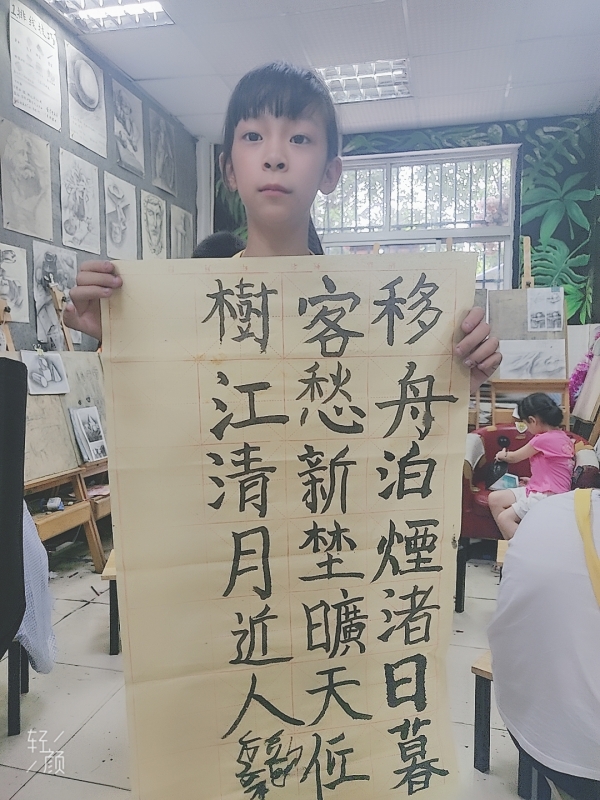 移舟泊煙渚日暮
客愁新埜曠天低
樹江清月近人
轻颜